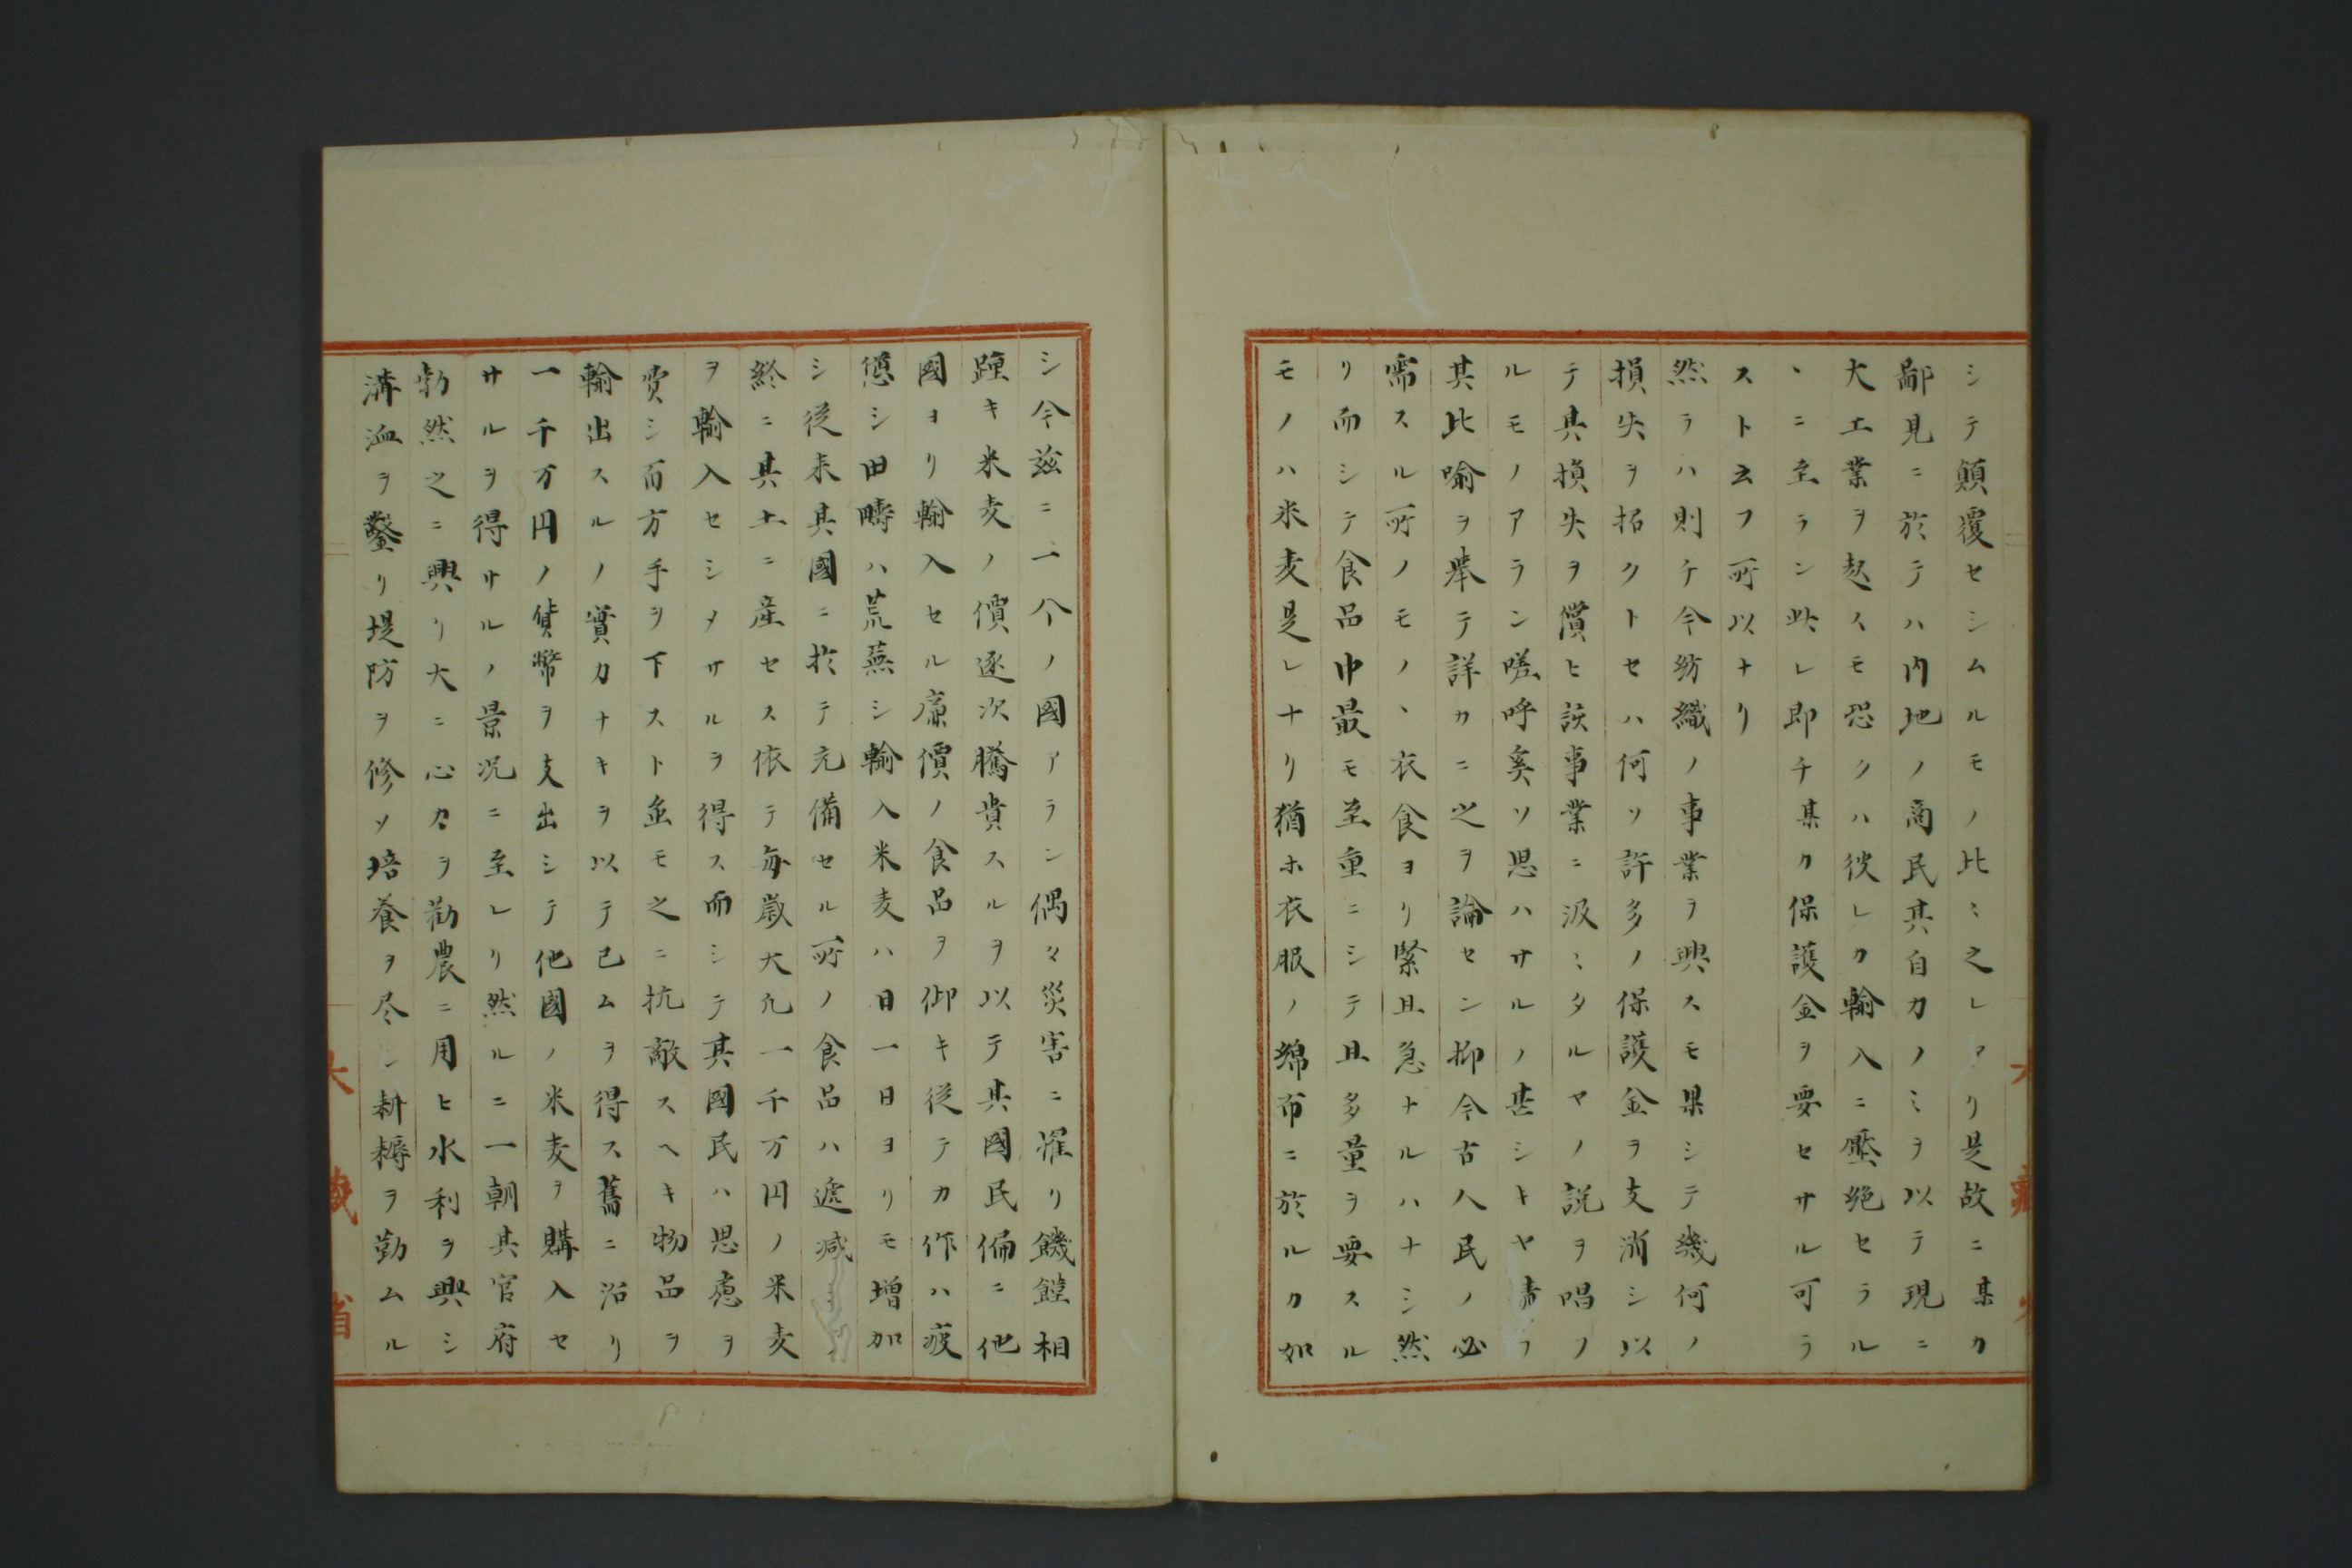 シテ顛覆セシムルモノ比〻之レアリ是故ニ某カ
鄙見ニ於テハ内地ノ商民其自力ノミヲ以テ現ニ
大工業ヲ起スモ恐クハ彼レカ輸入ニ壓絶セラル
ヽニ至ラン此レ即チ某カ保護金ヲ要セサル可ラ
スト云フ所以ナリ
然ラハ則チ今紡織ノ事業ヲ興スモ果シテ幾何ノ
損失ヲ招クトセハ何ソ許多ノ保護金ヲ支消シ以
テ其損失ヲ償ヒ該事業ニ汲〻タルヤノ説ヲ唱フ
ルモノアラン嗟呼奚ソ思ハサルノ甚シキヤ請フ
其比喩ヲ挙テ詳カニ之ヲ論セン抑今古人民ノ必
需スル所ノモノヽ衣食ヨリ緊且急ナルハナシ然
リ而シテ食品中最モ至重ニシテ且多量ヲ要スル
モノハ米麦是レナリ猶ホ衣服ノ綿布ニ於ルカ如
シ今茲ニ一个ノ國アラン偶々災害ニ罹リ饑饉相
踵キ米麦ノ價逐次騰貴スルヲ以テ其國民偏ニ他
國ヨリ輸入セル廉價ノ食品ヲ仰キ従テ力作ハ疲
憊シ田疇ハ荒蕪シ輸入米麦ハ日一日ヨリモ増加
シ従来其國ニ於テ充備セル所ノ食品ハ遞減
終ニ其土ニ産セス依テ毎歳大凡一千万円ノ米麦
ヲ輸入セシメサルヲ得ス而シテ其國民ハ思慮ヲ
費シ百方手ヲ下スト虽モ之ニ抗敵スヘキ物品ヲ
輸出スルノ實力ナキヲ以テ已ムヲ得ス舊ニ沿リ
一千万円ノ貨幣ヲ支出シテ他國ノ米麦ヲ購入セ
サルヲ得サルノ景况ニ至レリ然ルニ一朝其官府
勃然之ニ興リ大ニ心力ヲ勧農ニ用ヒ水利ヲ興シ
溝洫ヲ鑿リ堤防ヲ修メ培養ヲ尽シ耕耨ヲ勤ムル
大藏省